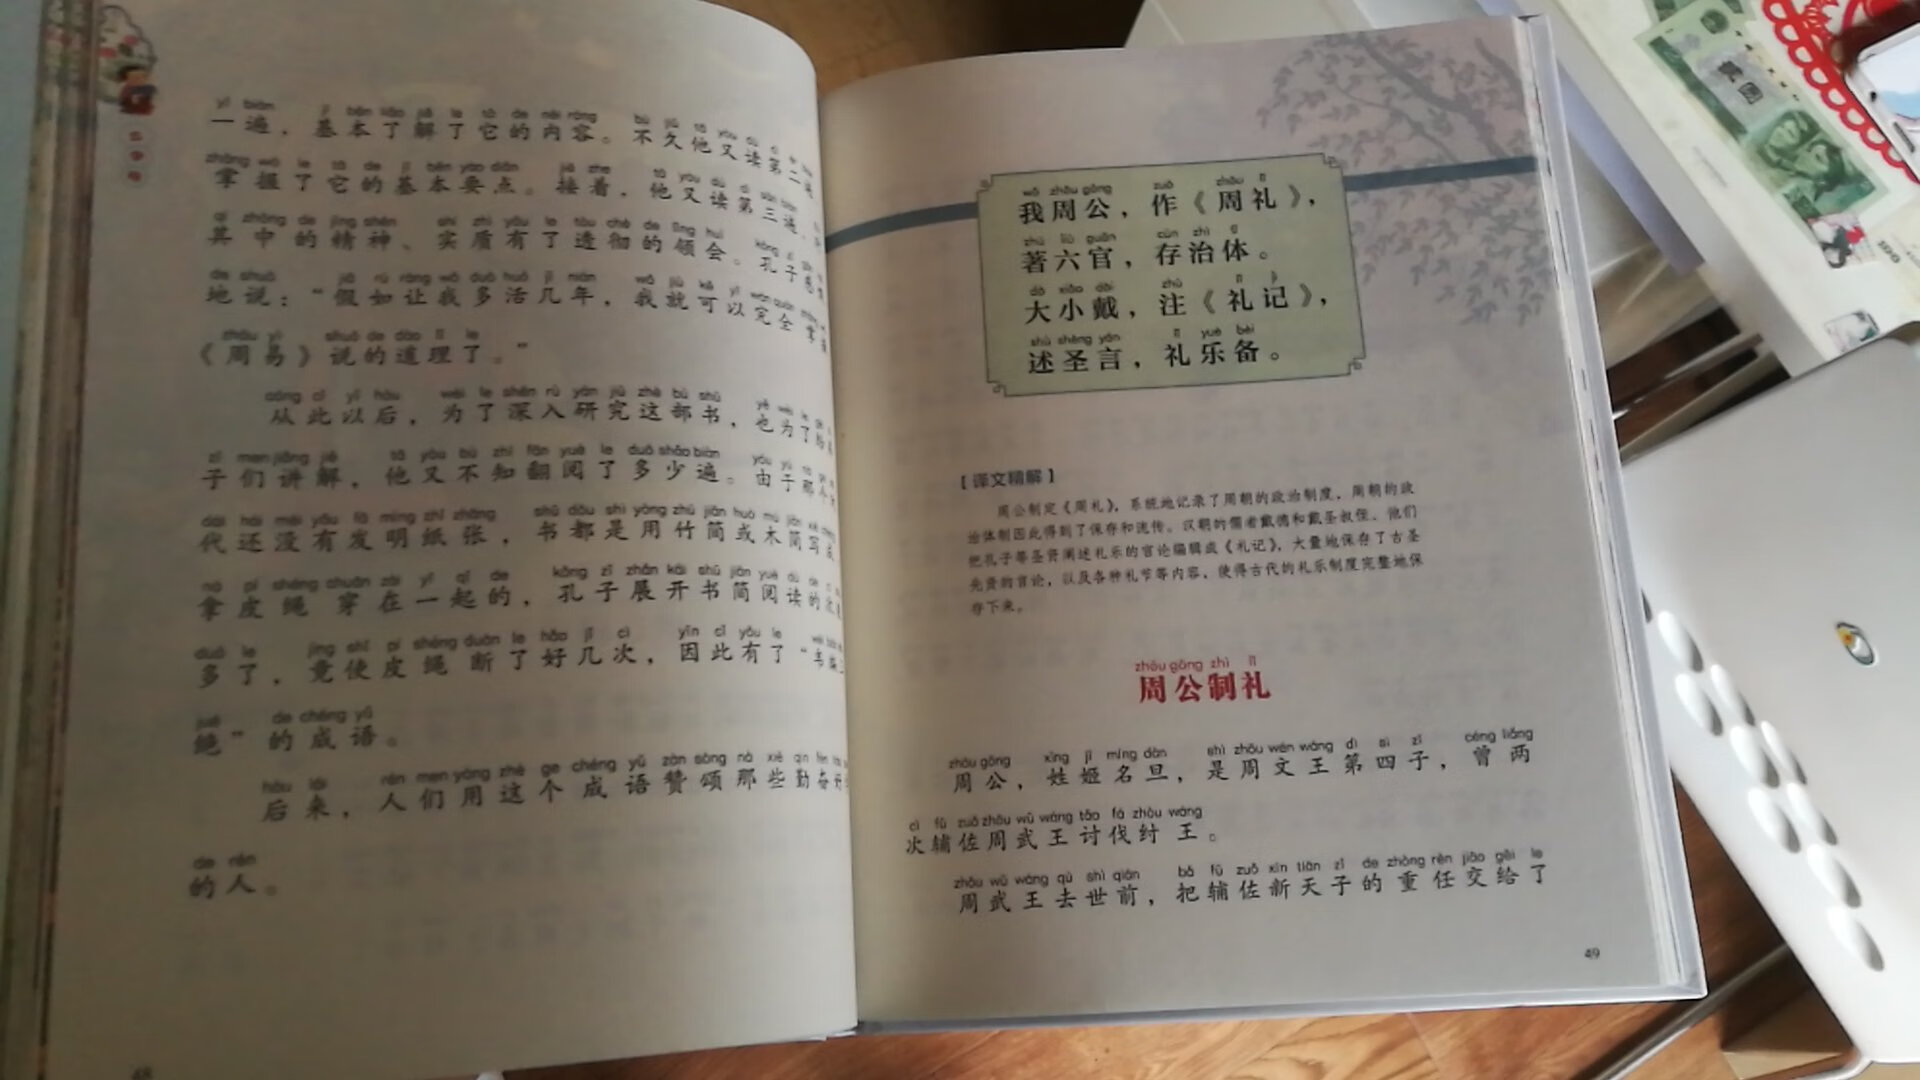 yī biàn jī běn liǎo jiě le tā de nèi róng bù jiǔ tā yòu dú
一遍，基本了解了它的内容。不久他又读第二遍
zhǎng wò le tā de jī běn yào diǎn jiē zhe tā yòu dú dì sān biàn
掌握了它的基本要点。接着，他又读第三遍，
qí zhōng de jīng shén shí zhì yǒu le tòu chè de lǐng huì kǒng zǐ
其中的精神、实质有了透彻的领会。孔子感
de shuō jiǎ rú ràng wǒ duō huó jǐ nián wǒ jiù kě yǐ wán quán
地说：“假如让我多活几年，我就可以完全掌
zhōu yì shuō de dào lǐ le
《周易》说的道理了。”
cóng cǐ yǐ hòu wèi le shēn rù yán jiū zhè bù shū yě wèi le
从此以后，为了深入研究这部书，也为了给
zǐ men jiǎng jiě tā yòu bù zhī fān yuè le duō shǎo biàn yóu yú nà
子们讲解，他又不知翻阅了多少遍。由于那个
dài hái méi yǒu fā míng zhǐ zhāng shū dōu shì yòng zhú jiǎn huò mù jiǎn xiě
代还没有发明纸张，书都是用竹简或木简写成
ná pí shéng chuān zài yī qǐ de kǒng zǐ zhǎn kāi shū jiǎn yuè dú de
拿皮绳穿在一起的，孔子展开书简阅读的次
duō le jìng shǐ pí shéng duàn le hǎo jǐ cì yīn cǐ yǒu le wéi
多了，竟使皮绳断了好几次，因此有了“韦编
jué de chéng yǔ
绝”的成语。
hòu lái rén men yòng zhè ge chéng yǔ zàn sòng nà xiē qín fèn
后来，人们用这个成语赞颂那些勤奋好
de rén
的人。
48
wǒ zhōu gōng zuò zhōu lǐ
我周公，作《周礼》，
zhù liù guān cún zhì tǐ
著六官，存治体。
dà xiǎo dài zhù lǐ jì
大小戴，注《礼记》，
shù shèng yán lǐ yuè bèi
述圣言，礼乐备。
【译文精解】
周公制定《周礼》，系统地记录了周朝的政治制度，周朝的政
治体制因此得到了保存和流传。汉朝的儒者戴德和戴圣叔侄，他们
把孔子等圣贤阐述礼乐的言论编辑成《礼记》，大量地保存了古圣
先贤的言论，以及各种礼节等内容，使得古代的礼乐制度完整地保
存下来。
zhōu gōng zhì lǐ
周公制礼
zhōu gōng xìng jī míng dàn shì zhōu wén wáng dì sì zǐ céng liǎng
周公，姓姬名旦，是周文王第四子，曾两
cì fǔ zuǒ zhōu wǔ wáng tǎo fá zhòu wáng
次辅佐周武王讨伐纣王。
zhōu wǔ wáng qù shì qián bǎ fǔ zuǒ xīn tiān zǐ de zhòng rèn jiāo gěi le
周武王去世前，把辅佐新天子的重任交给了
49
壹圆